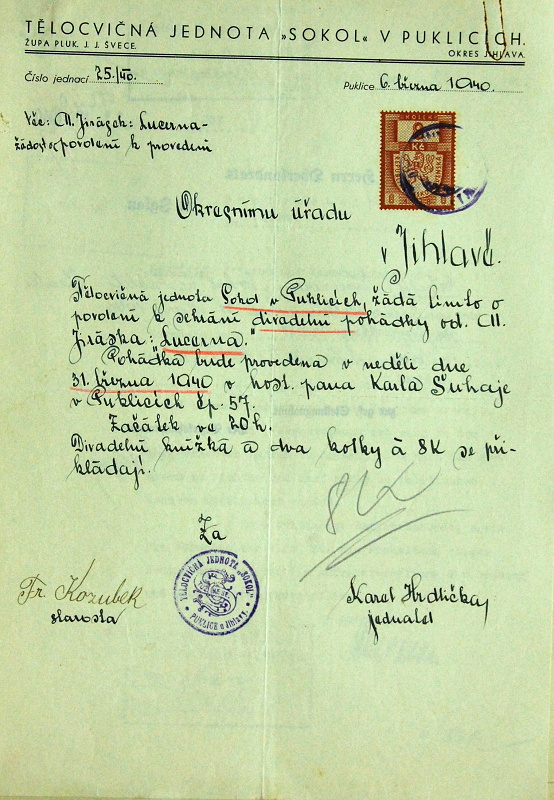 TĚLOCVIČNÁ JEDNOTA „SOKOL“ V PUKLICÍCH.
ŽUPA PLUK. J. J. ŠVECE.
OKRES JIHLAVA.
Číslo jednací 25/40.
Puklice 6. března 1940.
Věc: Al. Jirásek: Lucerna-
žádost o povolení k provedení
KOLEK
8
Kč
Okresnímu úřadu
v Jihlavě.
Tělocvičná jednota Sokol v Puklicích, žádá tímto o
povolení k sehrání divadelní pohádky od. Al.
Jiráska: „Lucerna.“
Pohádka bude provedena v neděli dne
31. března 1940 v host. pana Karla Suhaje
v Puklicích čp. 57.
Začátek ve 20 h.
Divadelní knížka a dva kolky à 8K se při-
kládají.
Za
TĚLOCVIČNÁ JEDNOTA „SOKOL“
PUKLICE u Jihlavy.
Fr Kozubek
starosta
Karel Hrdlička
jednatel